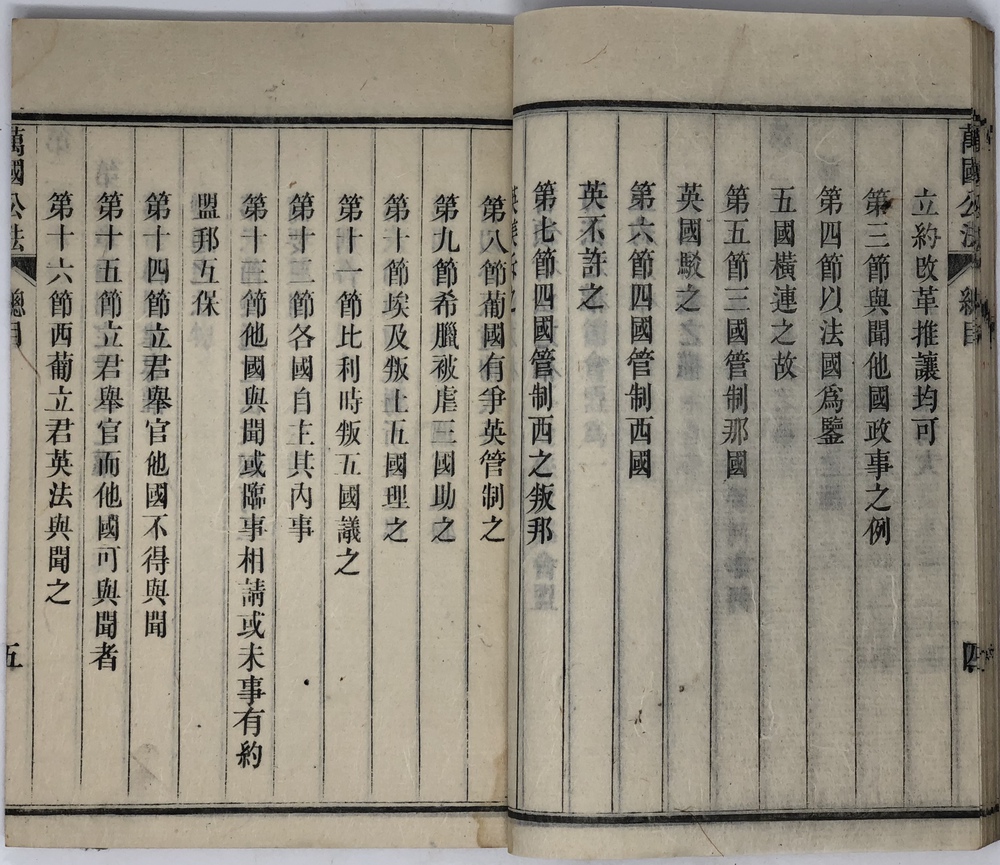 萬國公法 總目 四
立約改革推讓均可
第三節與聞他國政事之例
第四節以法國爲鑒
五國橫連之故
第五節三國管制那國
英國駁之
第六節四國管制西國
英不許之
第七節四國管制西之叛邦
第八節葡國有爭英管制之
第九節希臘被虐三國助之
第十節埃及叛土五國理之
第十一節比利時叛五國議之
第十二節各國自主其內事
第十三節他國與聞或臨事相請或未事有約
盟邦互保
第十四節立君舉官他國不得與聞
第十五節立君舉官而他國可與聞者
第十六節西葡立君英法與聞之
萬國公法 總目 五